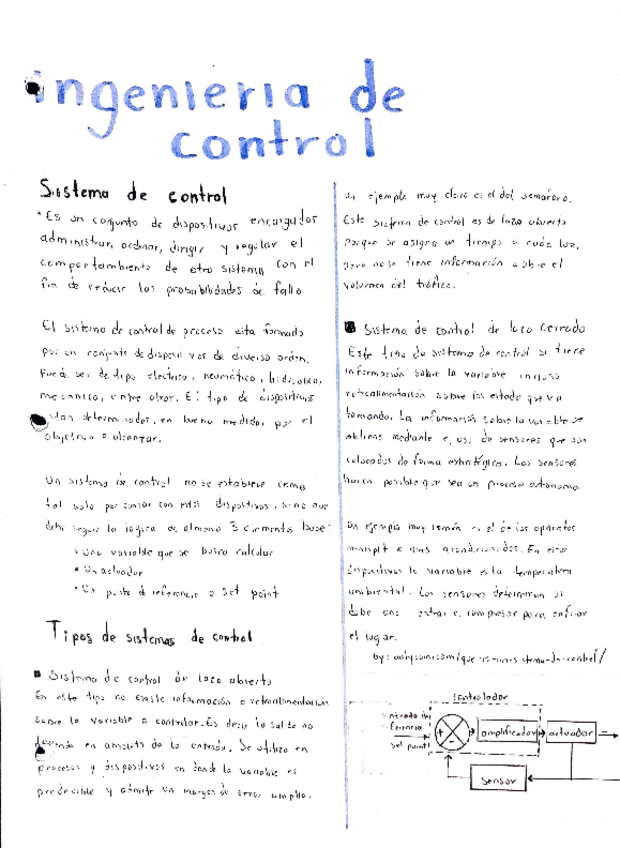 ingenieria de
control
Sistema de control
• Es un conjunto de dispositivos encargados
administrar, ordenar, dirigir y regular el
comportamiento de otro sistema con el
fin de reducir las probabilidades de fallo
El sistema de control de proceso esta formado
por un conjunto de dispositivos de diverso orden.
Puede ser de tipo electrico, neumático, hidraulico,
mecanico, entre otros. El tipo de dispositivos
estan determinados, en buena medida, por el
objetivo a alcanzar.
Un sistema de control no se establece como
tal solo por contar con estos dispositivos, sino que
debe seguir la logica de almeno 3 elementos base:
• Una variable que se busca calcular
• Un actuador
• Un punto d referencia o set point
Tipos de sistemas de control
Sistema de control de lazo abierto
En este tipo no existe información o retroalimentación
sobre la variable a controlar. Es decir la salida no
depende en absoluto de la entrada. Se utiliza en
procesos y dispositivos en donde la variable es
predecible y admite un margen de error amplio.
Un ejemplo muy claro es el del semaforo.
Este sistema de control es de lazo abierto
porque se asigna un tiempo a cada luz,
pero no se tiene información sobre el
volumen del tráfico.
Sistema de control de lazo Cerrado
Este tipo de sistema de control si tiene
información sobre la variable incluso
retroalimentación sobre los estado que va
tomando. La información sobre la variable se
obtiene mediante el uso de sensores que son
colocados de forma estratégica. Los sensores
hacen posible que sea un proceso autonomo
Un ejemplo muy común es el de los aparatos
acondicionados. En estos
dispositivos la variable es la temperatura
ambiental. Los sensores determinan si
debe entrar el compresor para enfriar
el lugar.
Controlador
entrada de
referencia
set point
amplificador
actuador
Sensor